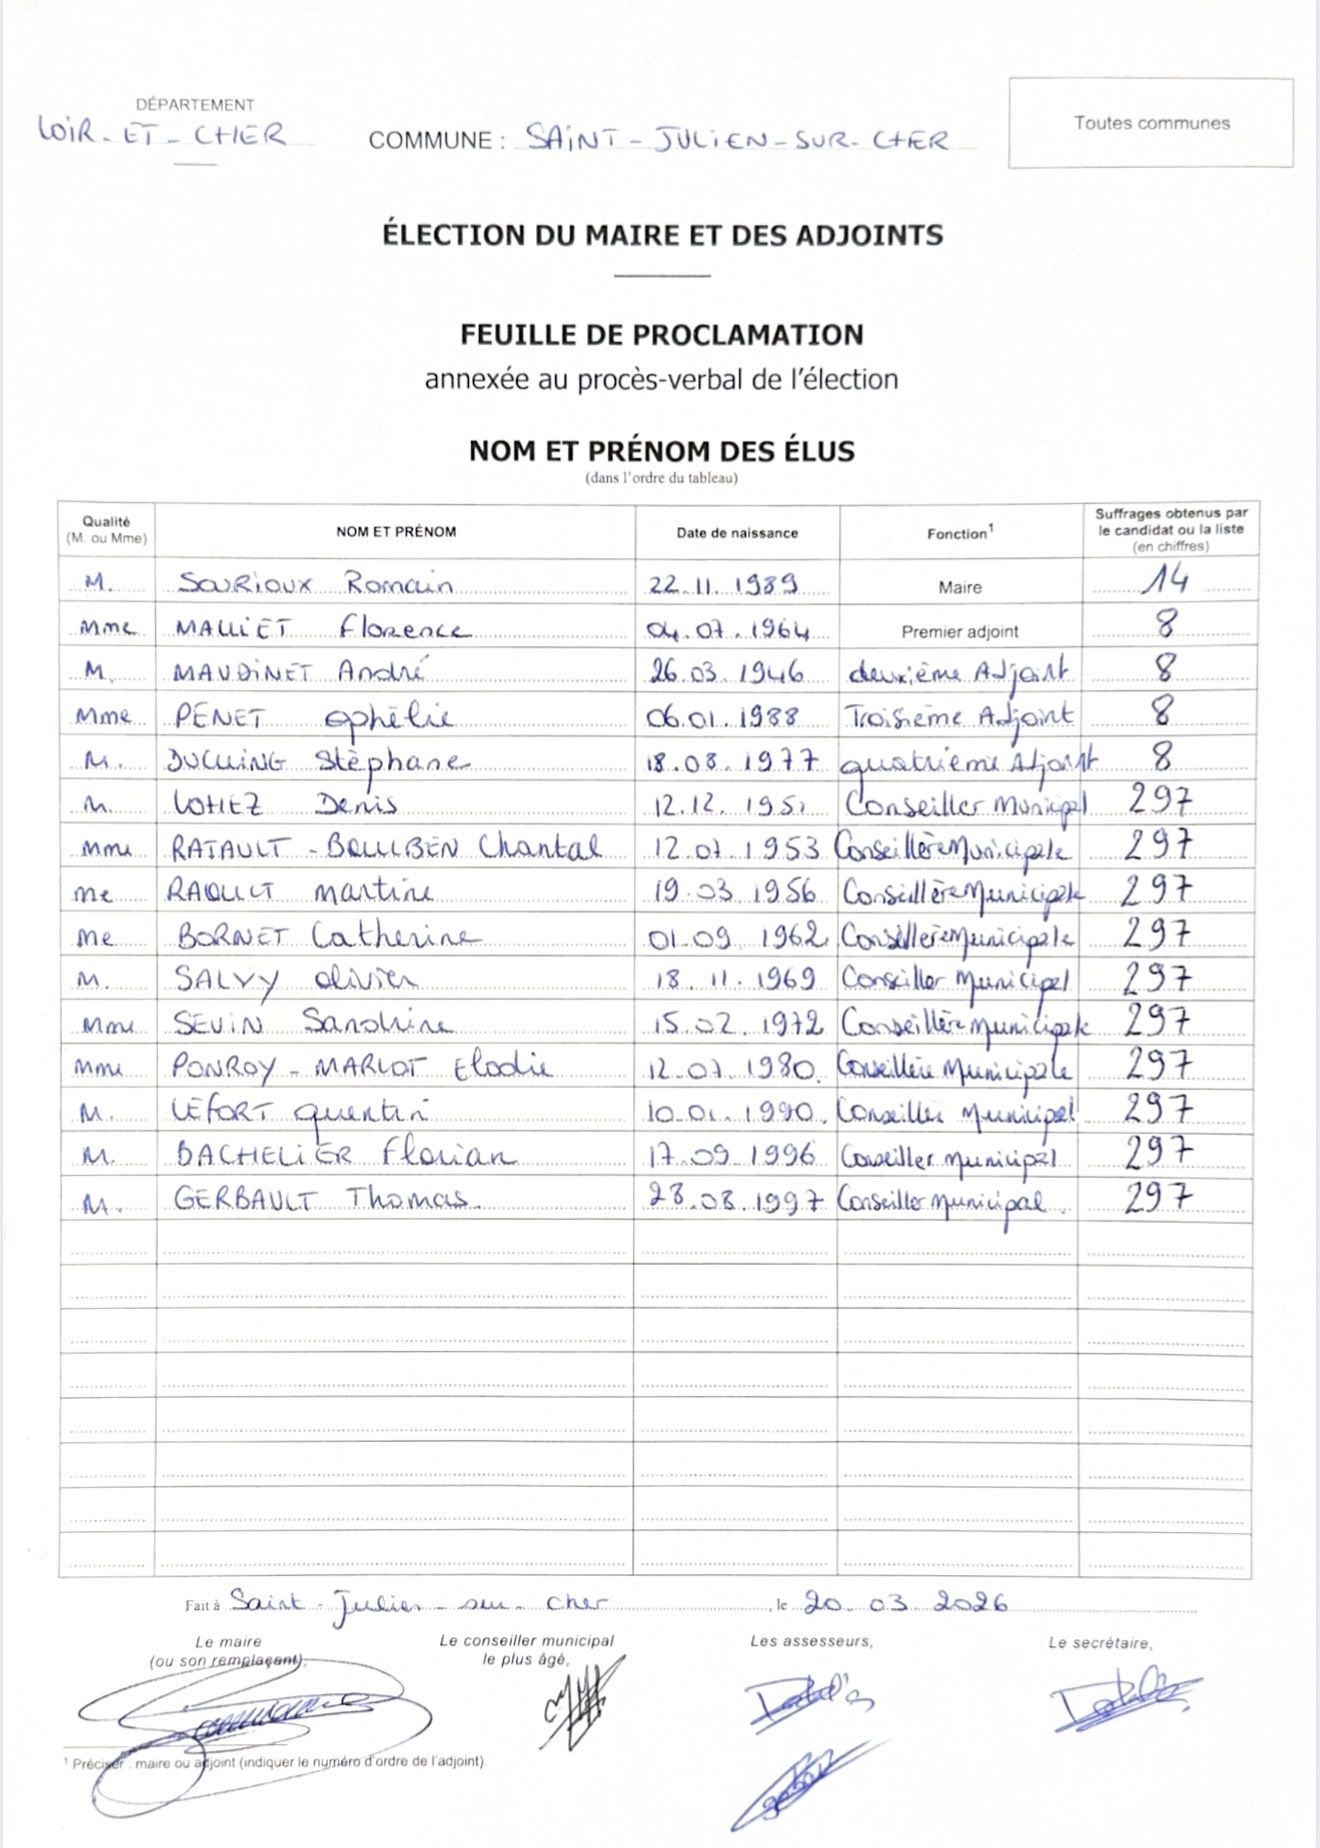 DÉPARTEMENT
LOIR-ET-CHER
COMMUNE : SAINT-JULIEN-SUR-CHER
Toutes communes
ÉLECTION DU MAIRE ET DES ADJOINTS
FEUILLE DE PROCLAMATION
annexée au procès-verbal de l'élection
NOM ET PRÉNOM DES ÉLUS
(dans l'ordre du tableau)
Qualité (M. ou Mme) NOM ET PRÉNOM Date de naissance Fonction¹ Suffrages obtenus par le candidat ou la liste (en chiffres)
M. SOURIOUX Romain 22.11.1989 Maire 14
Mme MALLIET Florence 04.07.1964 Premier adjoint 8
M. MAUDINET André 26.03.1946 deuxième Adjoint 8
Mme PENET Ophélie 06.01.1988 Troisième Adjoint 8
M. DUCLLING Stéphane 18.08.1977 quatrième Adjoint 8
M. LOHEZ Denis 12.12.1951 Conseiller Municipal 297
Mme RATAULT-BOULBEN Chantal 12.07.1953 Conseillère Municipale 297
Me RAOULT Martine 19.03.1956 Conseillère Municipale 297
Me BORNET Catherine 01.09.1962 Conseillère Municipale 297
M. SALVY Olivier 18.11.1969 Conseiller Municipal 297
Mme SEVIN Sandrine 15.02.1972 Conseillère Municipale 297
Mme PONROY-MARLOT Elodie 12.07.1980. Conseillère Municipale 297
M. LEFORT Quentin 10.01.1990. Conseiller Municipal 297
M. BACHELIER Florian 17.09.1996 Conseiller Municipal 297
M. GERBAULT Thomas. 28.08.1997 Conseiller Municipal. 297
Fait à Saint-Julien-sur-Cher, le 20.03.2026
Le maire (ou son remplaçant), Le conseiller municipal le plus âgé, Les assesseurs, Le secrétaire,
¹ Préciser : maire ou adjoint (indiquer le numéro d'ordre de l'adjoint).